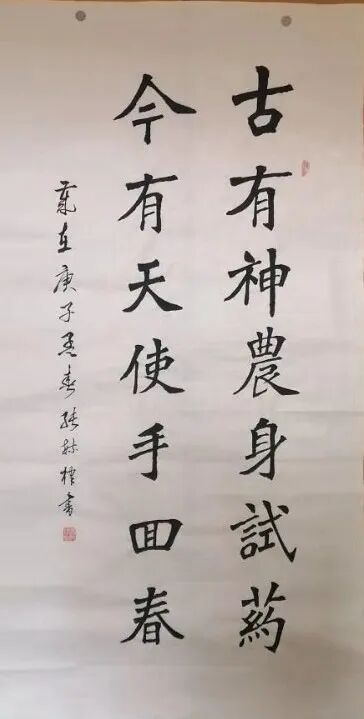 古有神農身試葯
今有天使手回春
歲在庚子孟春張書